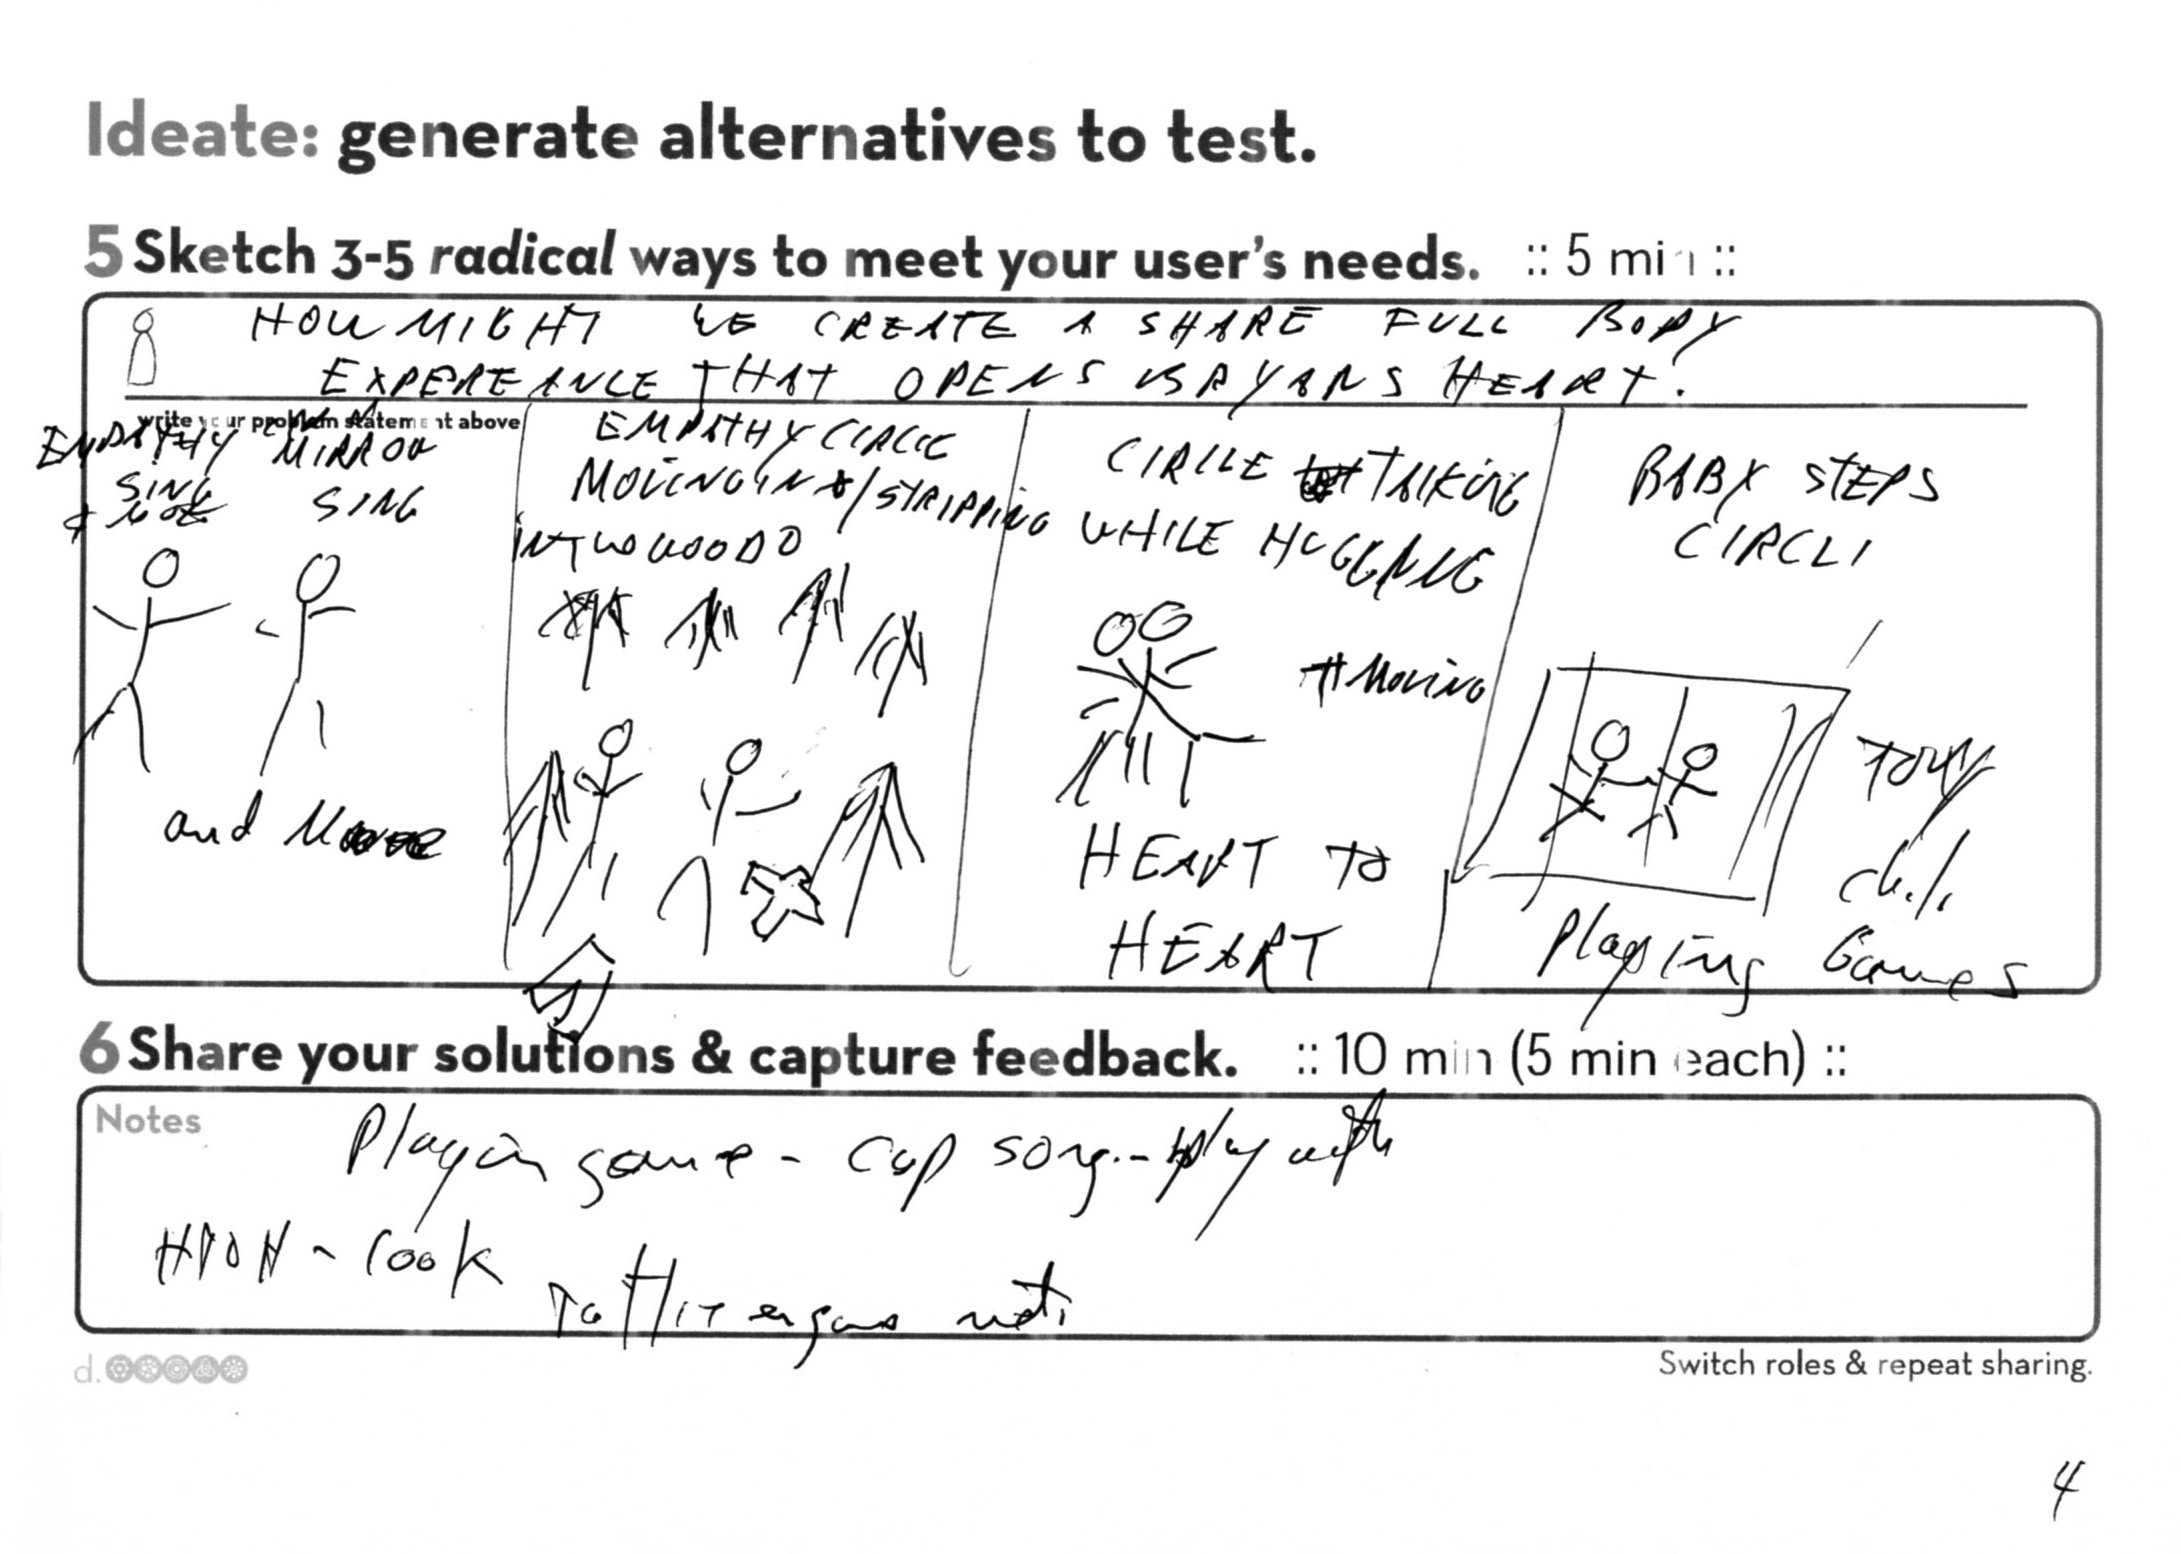 Ideate: generate alternatives to test.
5 Sketch 3-5 radical ways to meet your user's needs. :: 5 min ::
HOW MIGHT WE CREATE A SHARE FULL BODY
EXPEREANCE THAT OPENS HEART.
write your problem statement above
EMPATHY MIRROR
SING SING
and Move
EMPATHY CIRCLE
MOVING IN /STRIPPING
INTWO WOODD
CIRCLE TALKING
WHILE HUGGING
#MOVING
HEART TO
HEART
BABY STEPS
CIRCLI
Playing Games
6 Share your solutions & capture feedback. :: 10 min (5 min each) ::
Notes
Playin game - Cup song -- play with
look
d.
Switch roles & repeat sharing.
4